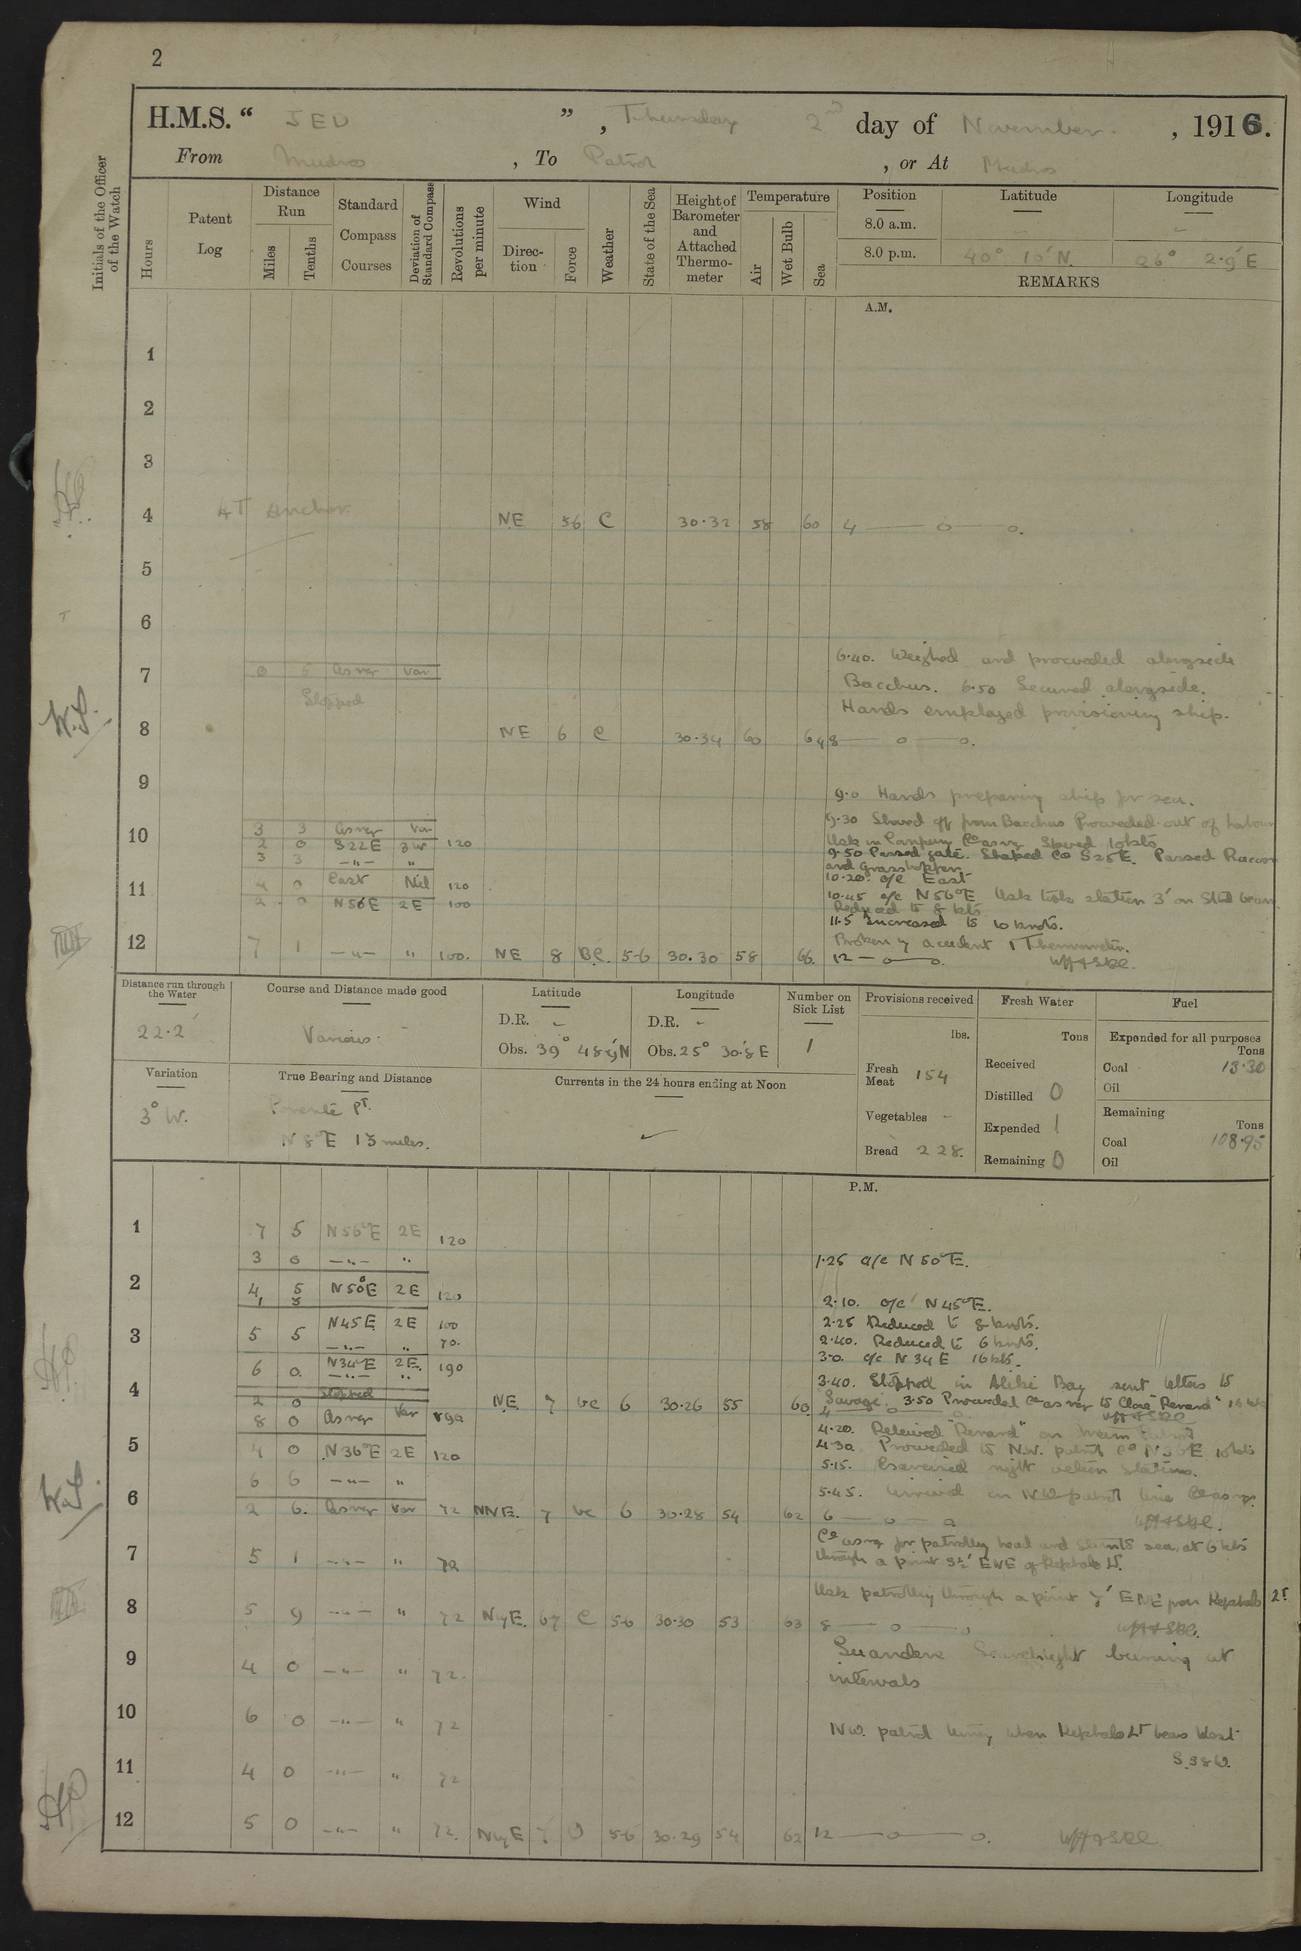 2
H.M.S. “ JED ” , Thursday 2nd day of November , 1916.
From Mudros , To Patrol , or At Mudros
Initials of the Officer of the Watch
Hours
Patent Log
Distance Run
Miles
Tenths
Standard Compass Courses
Deviation of Standard Compass
Revolutions per minute
Wind
Direction
Force
Weather
State of the Sea
Height of Barometer and Attached Thermometer
Temperature
Air
Wet Bulb
Sea
Position Latitude Longitude
8.0 a.m. - -
8.0 p.m. 40° 10' N. 26° 2.9' E
REMARKS
A.M.
1
2
3
4 AT Anchor NE 56 C 30.32 58 60 4 —— o —— o.
5
6
6.40. Weighed and proceeded alongside
7 0 5 As req Var
Bacchus. 6.50 Secured alongside.
Stopped
Hands employed provisioning ship.
W.S.
8 NE 6 C 30.34 60 64 8 —— o —— o.
9
9.0 Hands preparing ship for sea.
9.30 Shoved off from Bacchus Proceeded out of harbour
10 3 3 As req Var
2 0 S22E 3W 120
Usk in Company Co as req Speed 10 kts
3 3 —"— "
9.50 Passed gate. Shaped Co S25E. Passed Racoon
and Grasshopper
10.20. a/c East
11 4 0 East Nil 120
10.45 a/c N56°E Usk took station 3' on Stbd beam
2 0 N56E 2E 100
Reduced to 8 kts
11.5 Increased to 10 knots.
Broken by accident 1 Thermometer.
12 7 1 —"— " 100. NE 8 BC. 5-6 30.30 58 66. 12 — o —— o.
Distance run through the Water
22.2'
Course and Distance made good
Various.
Latitude
D.R. -
Obs. 39° 48.9' N
Longitude
D.R. -
Obs. 25° 30.8' E
Number on Sick List
1
Provisions received
lbs.
Fresh Meat 154
Vegetables -
Bread 228.
Fresh Water
Tons
Received
Distilled 0
Expended 1
Remaining 0
Fuel
Expended for all purposes
Tons
Coal 13.30
Oil
Remaining
Tons
Coal 108.95
Oil
Variation
3° W.
True Bearing and Distance
Pt.
N 8°E 13 miles.
Currents in the 24 hours ending at Noon
P.M.
1 7 5 N56°E 2E 120
3 0 —"— "
1.25 a/c N50°E.
2 4 5 N50°E 2E 120
1 5
2.10. a/c N45°E.
N45E 2E 100
2.25 Reduced to 8 knots.
3 5 5 —"— " 70.
2.40. Reduced to 6 knots.
3.0. a/c N34E 16 kts.
6 0. N34°E 2E. 190
—"— "
3.40. Stopped in Aliki Bay sent letters to
4 Stopped
2 0 NE 7 bc 6 30.26 55 60
Savage. 3.50 Proceeded Co as req to Close "Renard"
8 0 As req Var 190
4.20. Relieved "Renard" on
5 4 0 N36°E 2E 120
4.30 Proceeded to N.W. patrol Co N36E 10 kts
5.15. Exercised night action stations.
6 6 —"— "
W.S.
5.45. Arrived on N.W. patrol line Co as req.
6 2 6. As req Var 72 NNE. 7 bc 6 30.28 54 62 6 — o — o
Co as req for patrolling head and stern to sea, at 6 kts
7 5 1 —"— " 72
through a point 3½' ENE of Kephalo Lt.
Usk patrolling through a point 7' ENE from Kephalo Lt
8 5 9 —"— " 72 NbyE. 67 C 56 30.30 53 63 8 —— o —— o
Suandere Searchlight burning at
9 4 0 —"— " 72.
intervals
10 6 0 —"— " 72
N.W. patrol when Kephalo Lt bears West
S38W.
11 4 0 —"— " 72
12 5 0 —"— " 72. NbyE 7 O 56 30.29 54 62 12 —— o —— o.